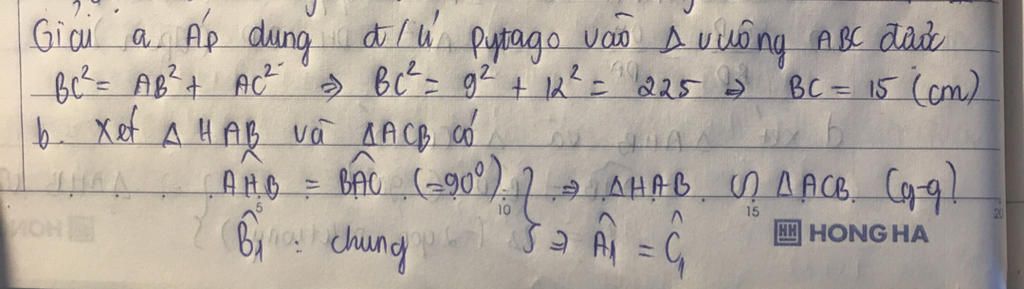 Giải a. Áp dụng đ/lí pytago vào Δ vuông ABC được
BC² = AB² + AC² ⇒ BC² = 9² + 12² = 225 ⇒ BC = 15 (cm)
b. Xét Δ HAB và ΔACB có
AHB̂ = BAĈ (=90⁰) } ⇒ ΔHAB ∽ ΔACB (g-g)
B̂₁ : chung } ⇒ Â₁ = Ĉ₁
5 10 15 20
HH HONG HA